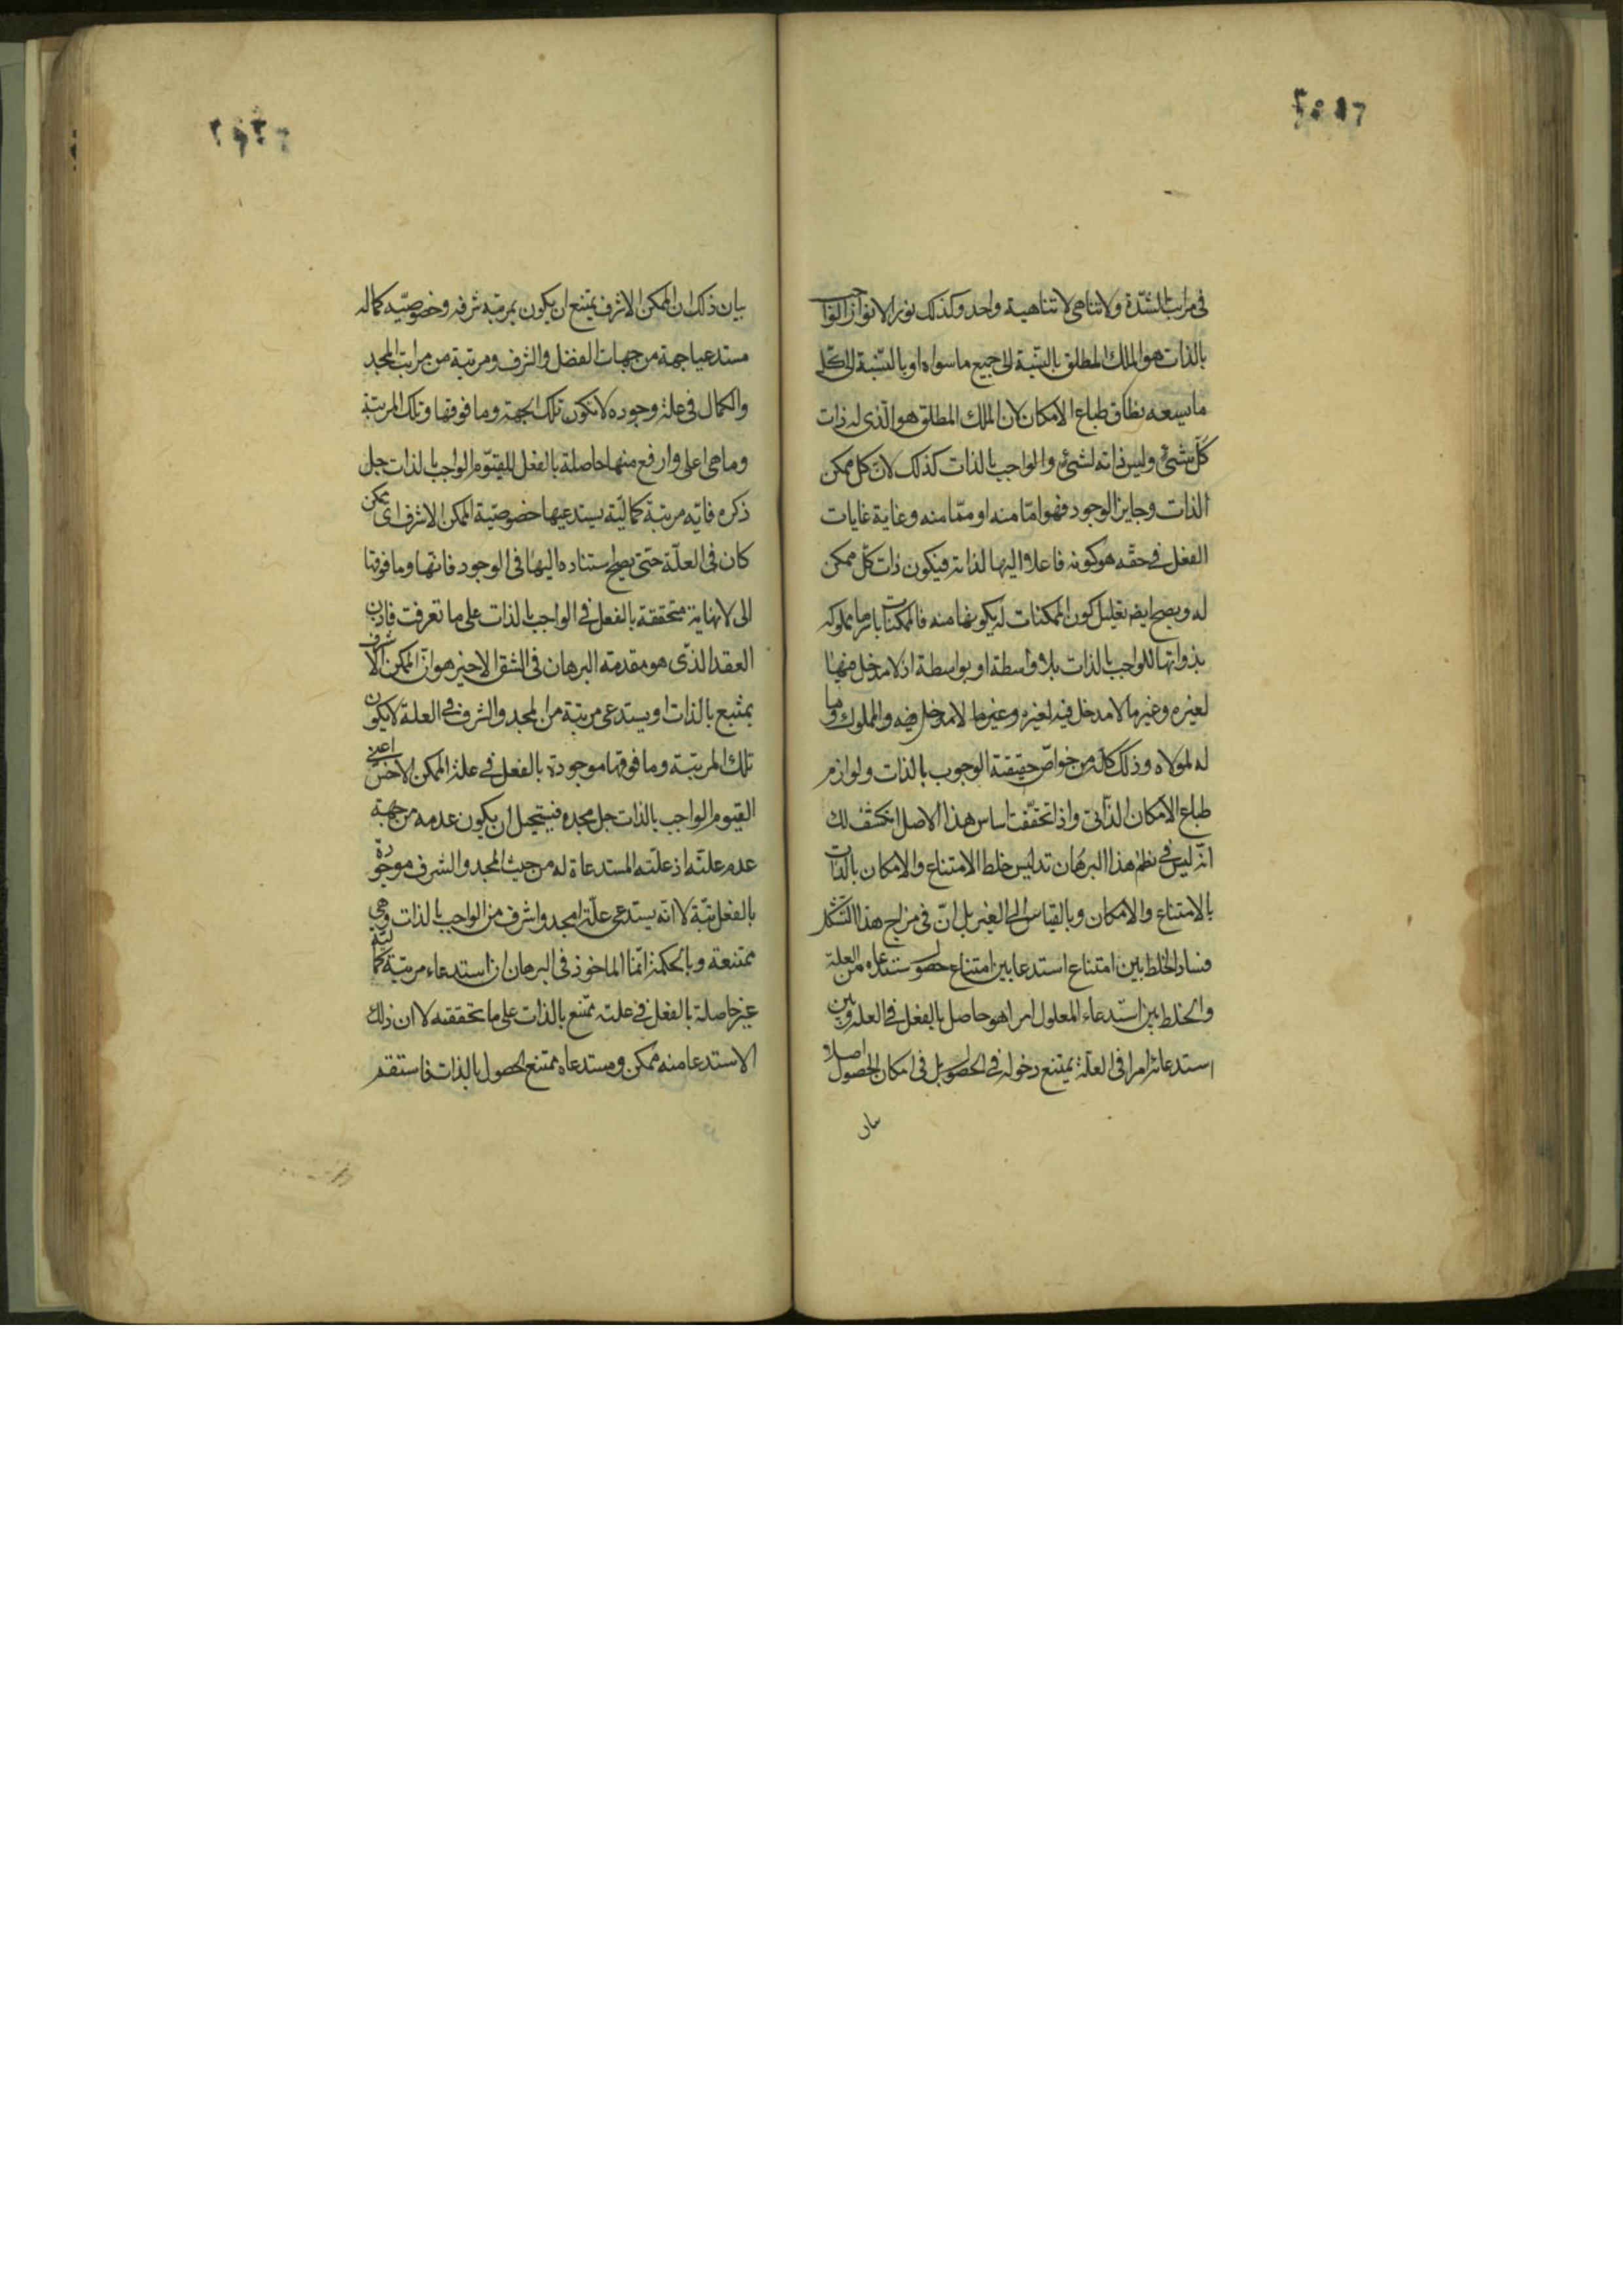 في مراتب الشدة ولاتناهي لاتناهية واحد وكذلك نور الانوار اذ الواجب
بالذات هو الملك المطلق بالنسبة الى جميع ما سواه او بالنسبة الى كل
ما يسعه نطاق طباع الامكان لان الملك المطلق هو الذي له ذات
كل شيء وليس ذاته لشيء والواجب بالذات كذلك لان كل ممكن
الذات وجايز الوجود فهو اما منه او مما منه وغاية غايات
الفعل في حقه هو كونه فاعلا اليها لذاته فيكون ذات كل ممكن
له ويصح ايضا تعليل كون الممكنات له بكونها منه فالممكنات باسرها مملوكه
بذواتها للواجب بالذات بلا واسطة او بواسطة اذ لا مدخل فيها
لغيره وغيرها لا مدخل فيه لغيره وغيرها لا مدخل فيه والمملوك وما
له لمولاه وذلك كله من خواص حقيقة الوجوب بالذات ولوازم
طباع الامكان الذاتي واذا تحققت اساس هذا الاصل انكشف لك
انه ليس في نظم هذا البرهان تدليس خلط الامتناع والامكان بالذات
بالامتناع والامكان وبالقياس الى الغير بل ان في مزاج هذا التشكك
فساد الخلط بين امتناع استدعا بين امتناع حصول مستدعاه من العلة
والخلط بين استدعاء المعلول امرا هو حاصل بالفعل في العلة وبين
استدعائه امرا في العلة يمتنع دخوله في الحصول بل في امكان الحصول اصلا و
بيان
بيان ذلك ان الممكن الاشرف يمتنع ان يكون بمرتبة شرفه وخصوصيه كماله
مستدعيا جهة من جهات الفضل والشرف ومرتبة من مراتب المجد
والكمال في علة وجوده لا تكون تلك الجهة وما فوقها وتلك المرتبة
وما هي اعلى وارفع منها حاصلة بالفعل للقيوم الواجب بالذات جل
ذكره فاية مرتبة كمالية يستدعيها خصوصية الممكن الاشرف اي ممكن
كان في العلة حتى يصح استناده اليها في الوجود فانها وما فوقها
الى لا نهاية متحققة بالفعل في الواجب بالذات على ما تعرفت فاذن
العقد الذي هو مقدمة البرهان في الشق الاخير هو ان الممكن الاشرف
يمتنع بالذات او يستدعي مرتبة من المجد والشرف في العلة لا يكون
تلك المرتبة وما فوقها موجودة بالفعل في علة الممكن الاخس اعني
القيوم الواجب بالذات جل مجده فيستحيل ان يكون عدمه من جهة
عدم علته اذ علته المستدعاة له من حيث المجد والشرف موجودة
بالفعل بتة لا انه يستدعي علة امجد واشرف من الواجب بالذات وهي
ممتنعة وبالحكمة انما الماخوذ في البرهان ان استدعاء مرتبة كمالية
غير حاصلة بالفعل في علته ممتنع بالذات على ما تحققته لا ان ذلك
الاستدعا منه ممكن ومستدعاه ممتنع الحصول بالذات فاستقم